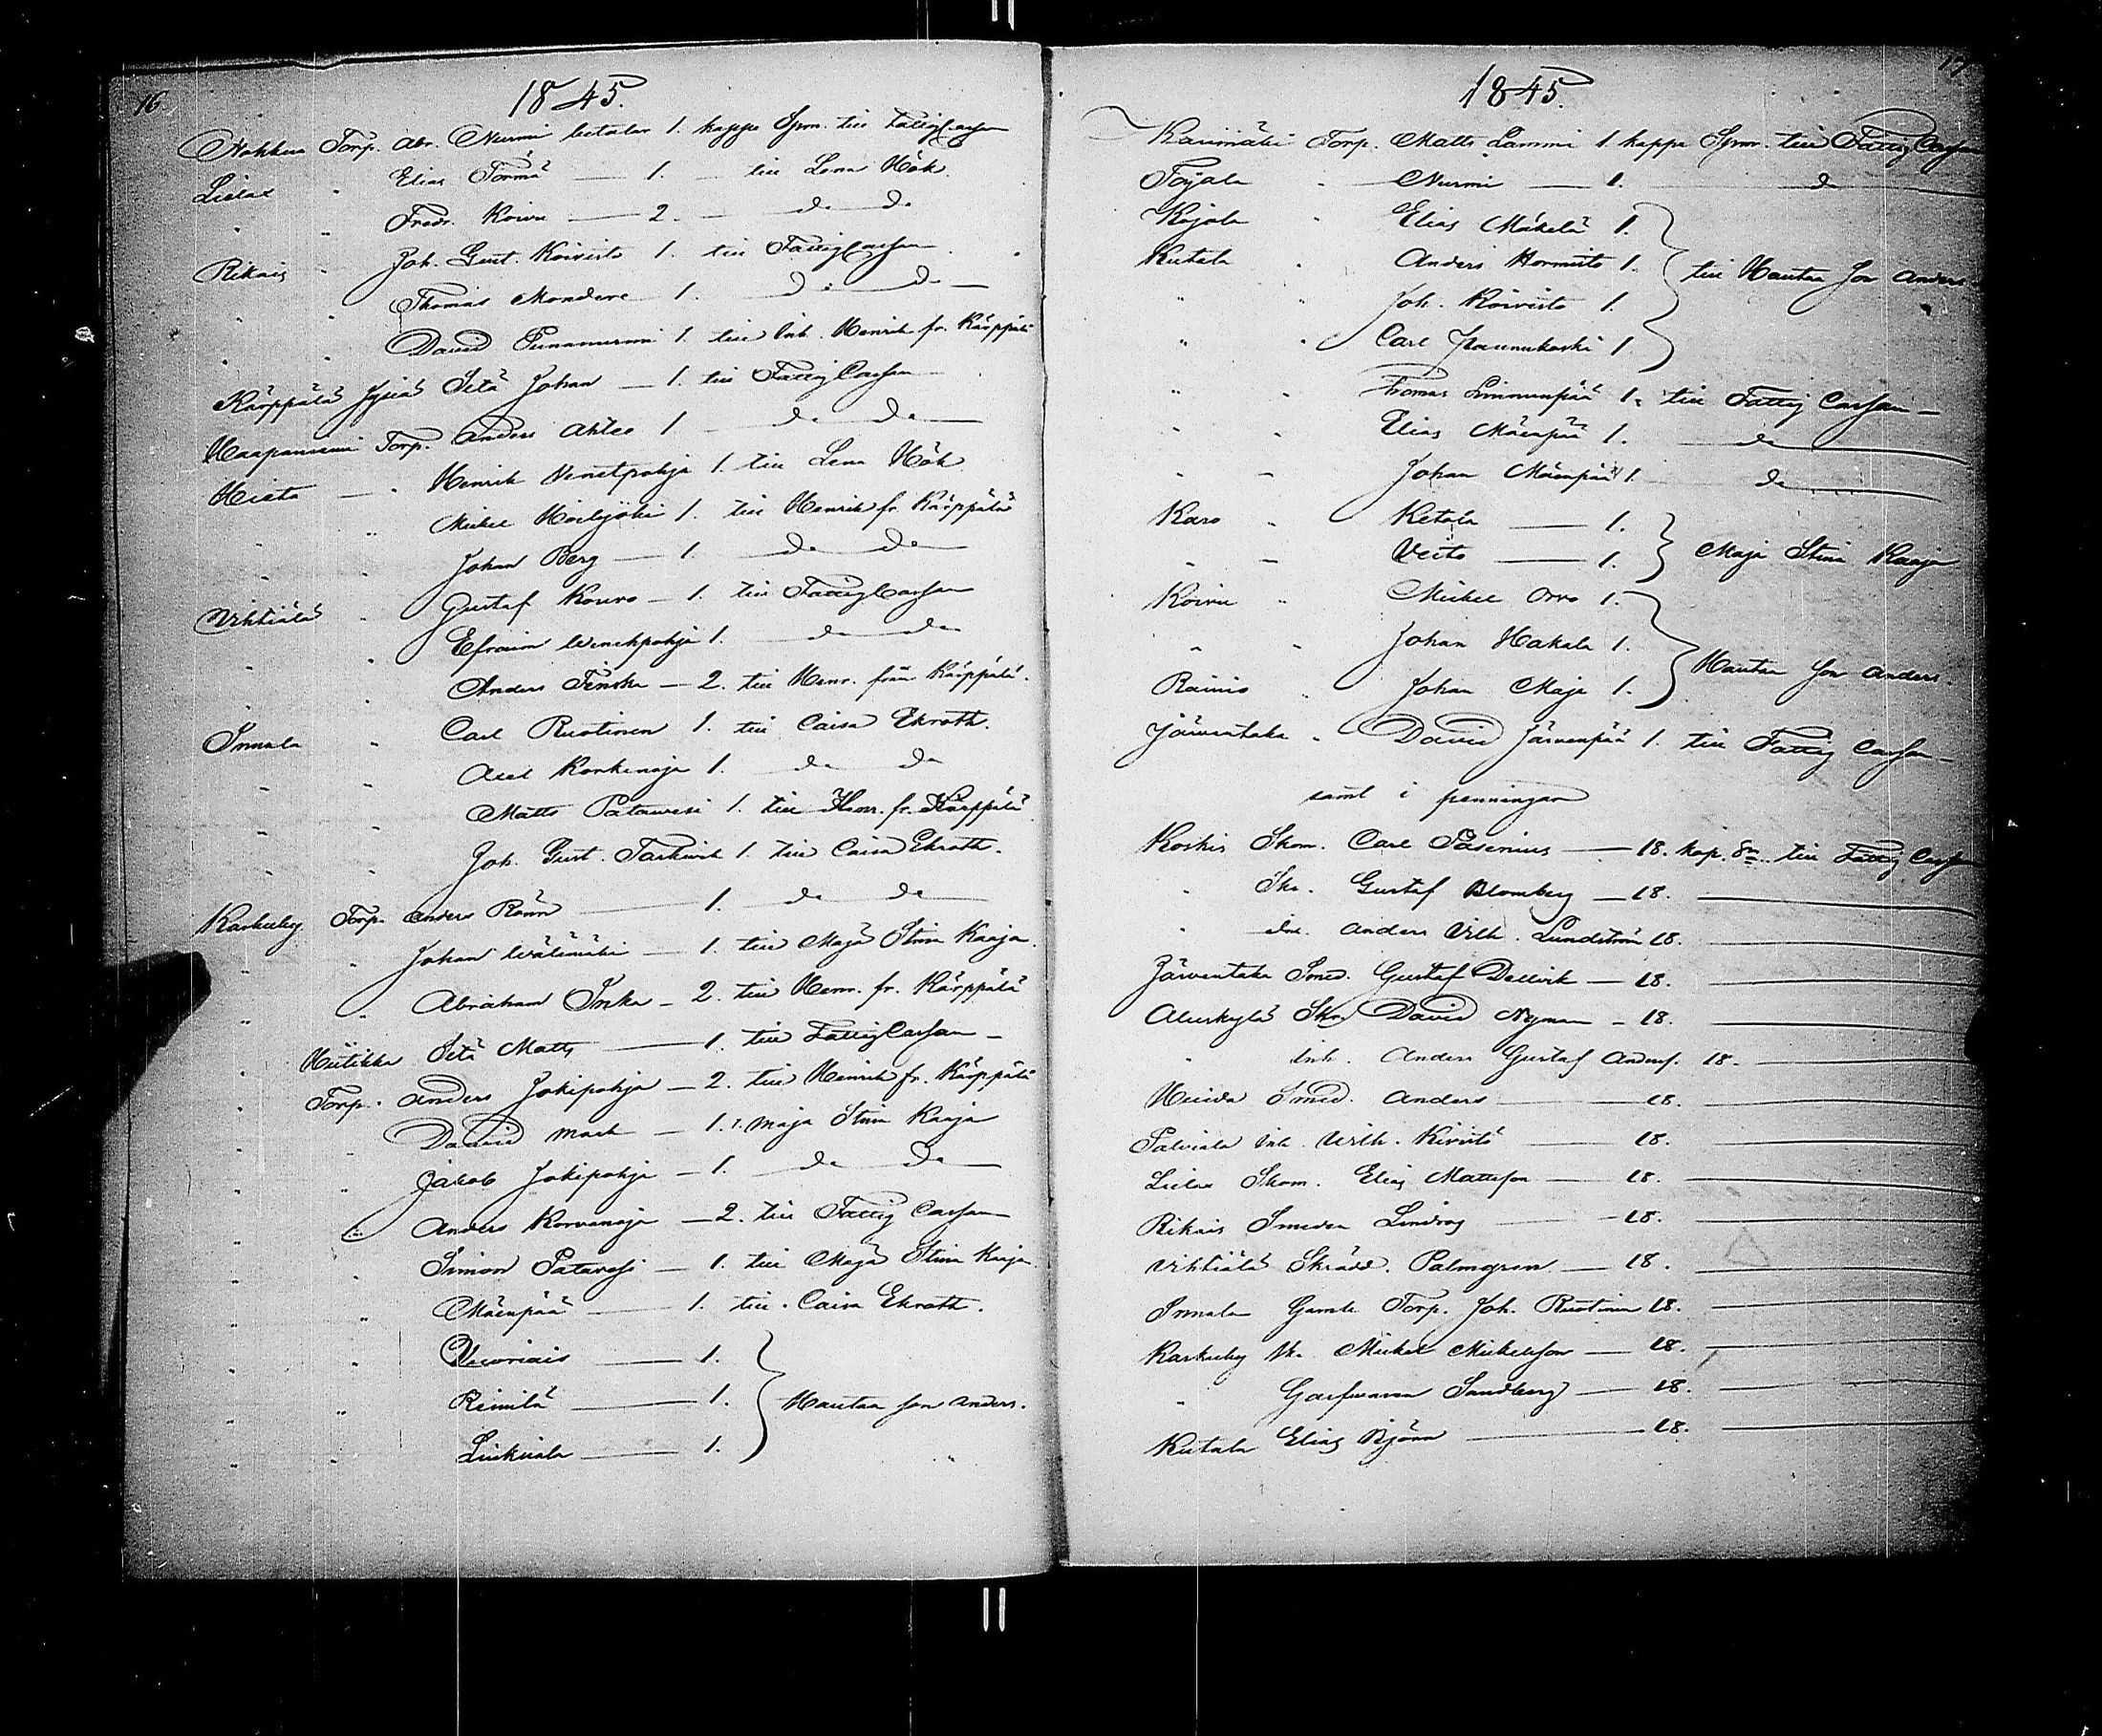 16
1845.
Nokkua Torp. Abr. Nurmi betalar 1. kappe Spm. till FattigCassan
Lielax " Elias Törmä — 1. — till Lena Hök
" " Fredr. Koivu — 2. — do do
Rikais " Joh. Gust. Koivisto 1. till FattigCassan
" " Thomas Mondere 1. do do
" " David Punanurmi 1. till Inh. Henrik fr. Kärppälä
Kärppälä Jyriä Sytä Johan — 1. till FattigCassan
Haapaniemi Torp. Anders Ahlee 1 — do do
Hieta — " Henrik Venetpohja 1. till Lena Hök
" " Michel Horlijoki 1. till Henrik fr. Kärppälä
" " Johan Berg — 1. do do
Vihtiälä " Gustaf Kouvo — 1. till FattigCassan
" " Efraim Wenehpohja 1. do do
" " Anders Finska — 2. till Henr. från Kärppälä.
Inmala " Carl Ruotinen 1. till Caisa Ekroth.
" " Axel Korkenoja 1. do do
" " Matts Patawesi 1. till Henr. fr. Kärppälä
" " Joh. Gust. Tarkivik 1. till Caisa Ekroth.
Karkuby Torp. Anders Rönn — 1. do do
" " Johan Wälimäki — 1. till Maja Stina Kaaja.
" " Abraham Inka — 2. till Henr. fr. Kärppälä
" Hiitikka Sytä Matts — 1. till FattigCassan —
" Torp. Anders Jokipohja — 2. till Henrik fr. Kärppälä
" " David Mark — 1. t. Maja Stina Kaaja
" " Jakob Jokipohja — 1. do do
" " Anders Korvenoja — 2. till Fattig Cassan
" " Simon Patavesi — 1. till Maja Stina Kaaja
" " Mäenpää — 1. till Caisa Ekroth.
" " — 1.
" " Reimilä — 1. Hautaa son Anders.
" " Liukuala — 1.
17
1845.
Karimäki Torp. Matts Lammi 1 kappe Spm. till Fattig Cassan
Tojala " Nurmi — 1. do
Kojola " Elias Mäkelä 1.
Kutala " Anders Hormisto 1. till Hautaa son Anders.
" " Joh. Koivisto 1.
" " Carl Jaanukoski 1
" " Thomas Linnunpää 1. till Fattig Cassan —
" " Elias Mäenpää 1. do
" " Johan Mäenpää 1. do
Karo " Ketola — 1.
" " Veito — 1. Maja Stina Kaaja
Koivu " Michel Orro 1.
" " Johan Hakala 1.
Rainio " Johan Maja 1. Hautaa son Anders.
Järventaka " David Järvenpää 1. till Fattig Cassan —
samt i penningar
Koskis Skom. Carl Fasenius — 18. kop. Sr. till Fattig Cassan
" Skr. Gustaf Blomberg — 18.
" Inh. Anders Vilh. Lundström 18.
Järventaka Smed. Gustaf Dellvik — 18.
Aluskylä Skr. David Nyman — 18.
" Inh. Anders Gustaf Anders. 18.
Huida Smed. Anders — 18.
Palviala Inh. Vilh. Kivistö — 18.
Lielax Skom. Elias Mattsson — 18.
Rikais Smeden Lindros — 18.
Vihtiälä Skrädd. Palmgren — 18.
Inmala Gamle Torp. Joh. Ruotinen 18.
Karkuby Sk. Michel Michelsson — 18.
" Garfvaren Sandberg — 18.
Kutala Elias Björn — 18.